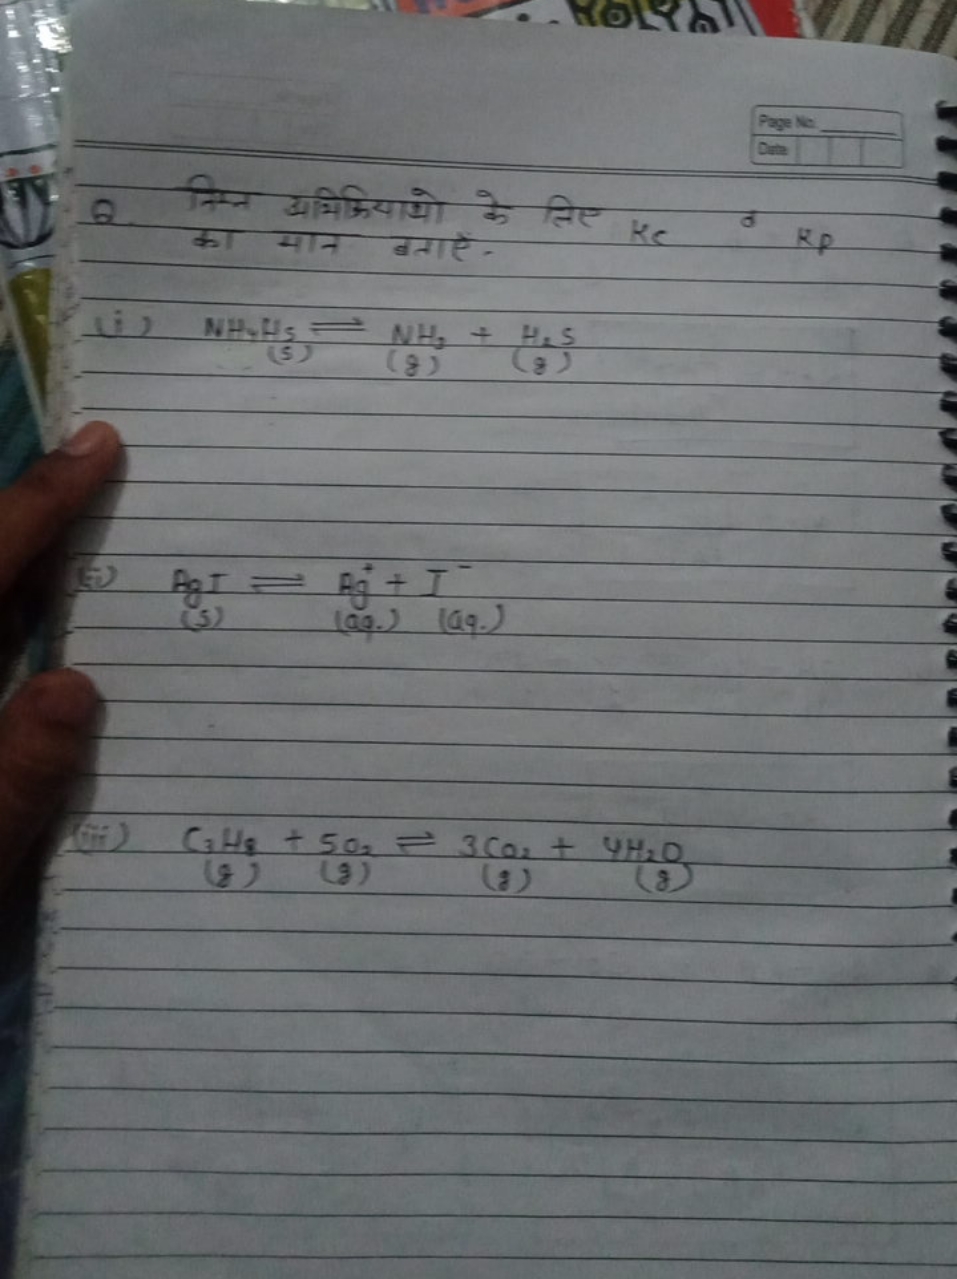 Page No.
Date
Q. निम्न अभिक्रियाओ के लिए Kc व Kp
का मान बताएँ -
(i) NH4HS ⇌ NH3 + H2S
(s) (g) (g)
(ii) AgI ⇌ Ag⁺ + I⁻
(s) (aq.) (aq.)
(iii) C3H8 + 5O2 ⇌ 3CO2 + 4H2O
(g) (g) (g) (g)